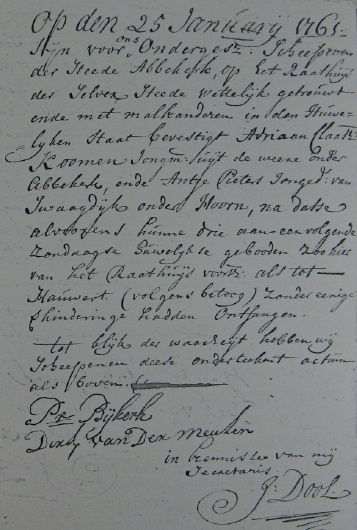 Op den 25 Januarij 1761
Sijn voor ons Ondergesz: Scheepenen
der Steede Abbekerk, op het Raathuijs
der Selver Steede wettelijk getrouwt
ende met malkanderen in den Huwe-
lyken Staat bevestigt Adriaan Claasz:
Koomen Jongm: uijt de weere onder
Abbekerk, ende Antje Pieters Jonged: van
Swaagdijk onder Hoorn, na datse
alvoorens hunne drie aan een volgende
Zondaagse Huwelykse geboden zoo hier
van het Raathuijs voorsz: als tot
Hauwert (volgens betoog) zonder eenige
verhinderinge hadden Ontfangen.
tot blijk der waarheyt hebben wij
Scheepenen deese onderteekent actum
als boven.
Pr Bijkerk
Dirk Van Der Meulen
in kennisse van mij
Secretaris
J: Dool